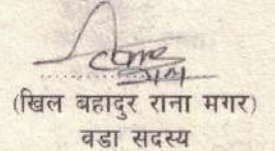 (खिल बहादुर राना मगर)
वडा सदस्य